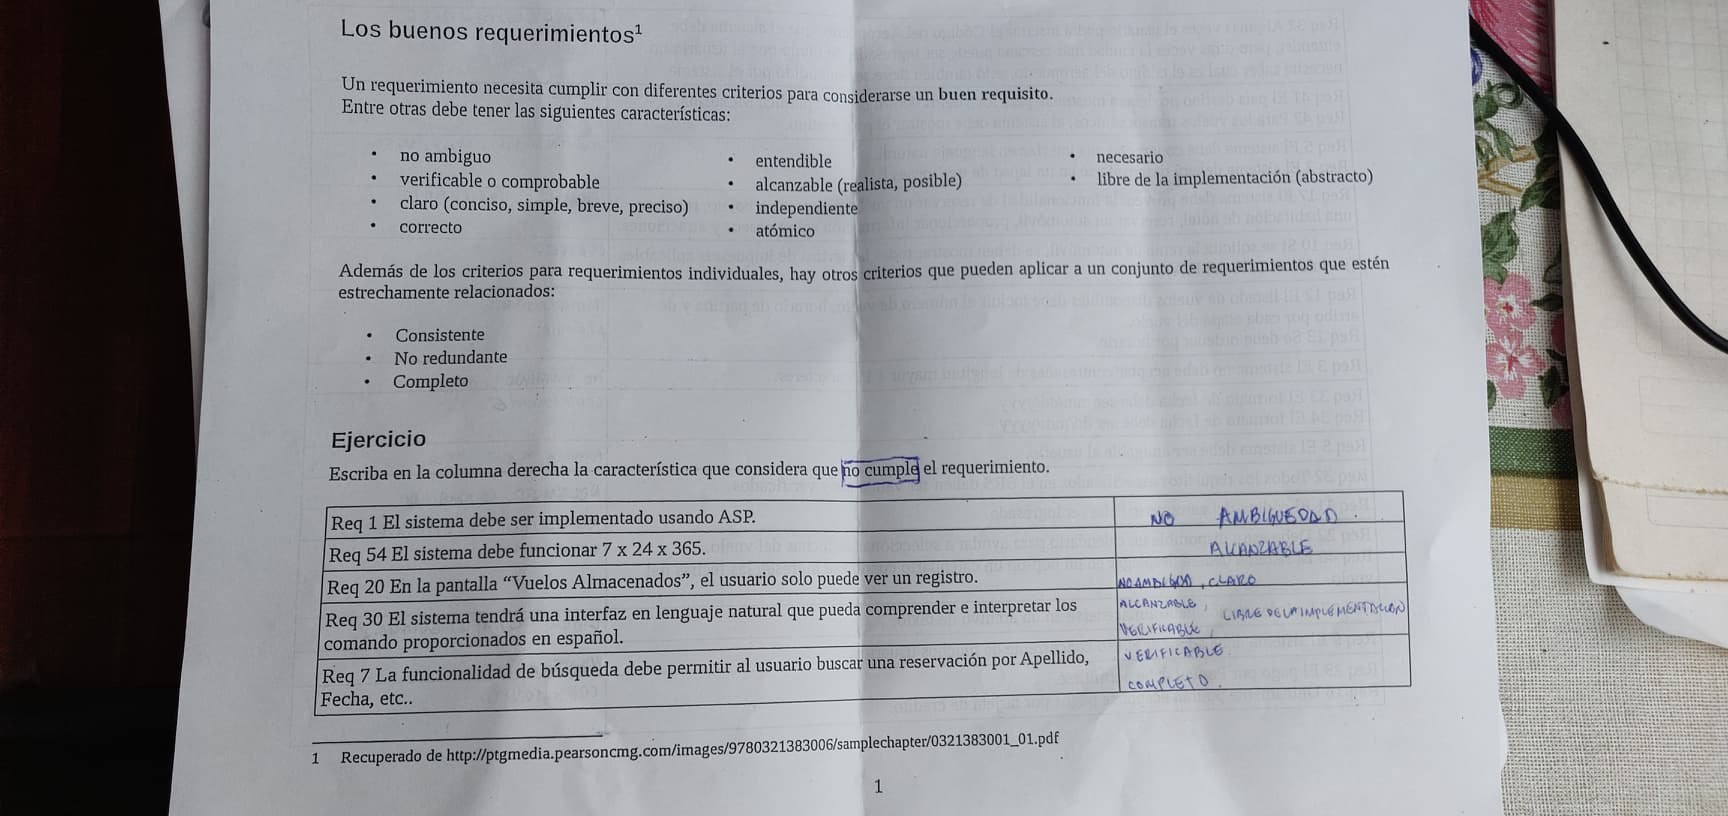 Los buenos requerimientos¹
Un requerimiento necesita cumplir con diferentes criterios para considerarse un buen requisito.
Entre otras debe tener las siguientes características:
• no ambiguo
• verificable o comprobable
• claro (conciso, simple, breve, preciso)
• correcto
• entendible
• alcanzable (realista, posible)
• independiente
• atómico
• necesario
• libre de la implementación (abstracto)
Además de los criterios para requerimientos individuales, hay otros criterios que pueden aplicar a un conjunto de requerimientos que estén
estrechamente relacionados:
• Consistente
• No redundante
• Completo
Ejercicio
Escriba en la columna derecha la característica que considera que no cumple el requerimiento.
Req 1 El sistema debe ser implementado usando ASP.
NO AMBIGUEDAD.
Req 54 El sistema debe funcionar 7 x 24 x 365.
ALCANZABLE
Req 20 En la pantalla “Vuelos Almacenados”, el usuario solo puede ver un registro.
NO AMBIGUO, CLARO
Req 30 El sistema tendrá una interfaz en lenguaje natural que pueda comprender e interpretar los
comando proporcionados en español.
ALCANZABLE, LIBRE DE LA IMPLEMENTACION
VERIFICABLE,
Req 7 La funcionalidad de búsqueda debe permitir al usuario buscar una reservación por Apellido,
Fecha, etc..
VERIFICABLE
COMPLETO.
1 Recuperado de http://ptgmedia.pearsoncmg.com/images/9780321383006/samplechapter/0321383001_01.pdf
1